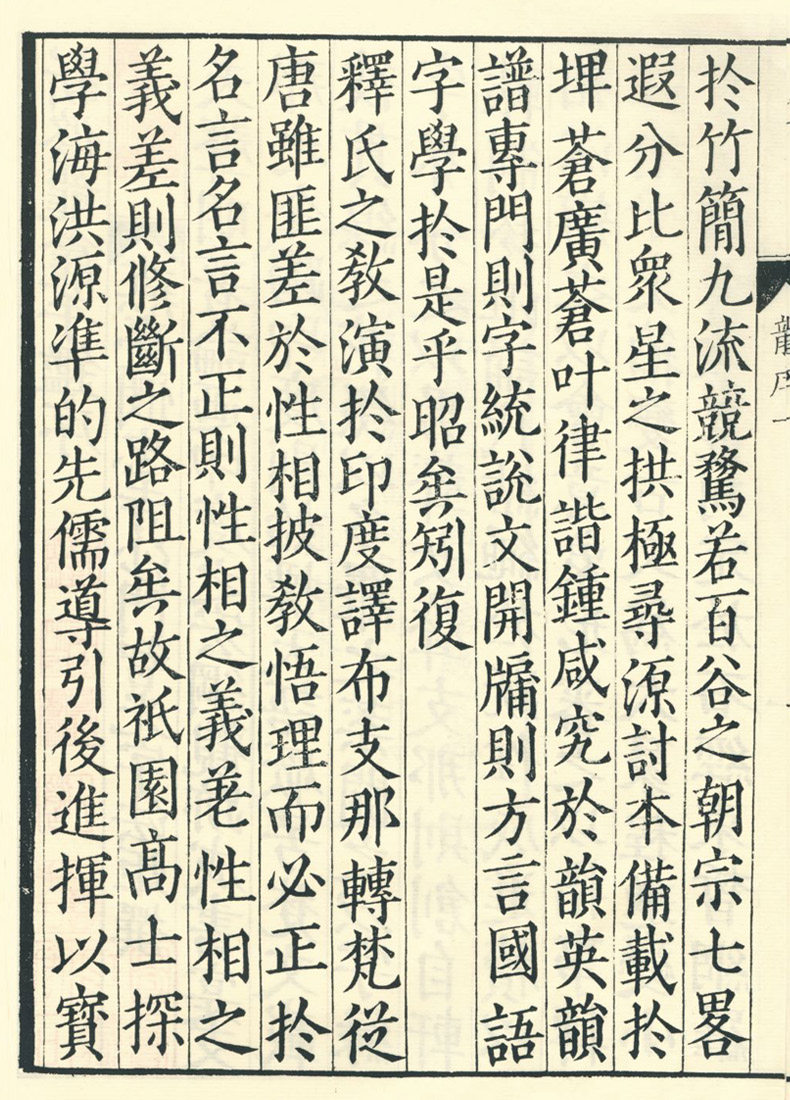 扵竹簡九流競騖若百谷之朝宗七畧
遐分比衆星之拱極尋源討本備載扵
埤蒼廣蒼叶律諧鍾咸究於韻英韻
譜專門則字統說文開牖則方言國語
字學扵是乎昭矣矧復
釋氏之教演扵印度譯布支那轉梵從
唐雖匪差於性相披教悟理而必正扵
名言名言不正則性相之義差性相之
義差則修斷之路阻矣故祇園髙士探
學海洪源準的先儒導引後進揮以寶